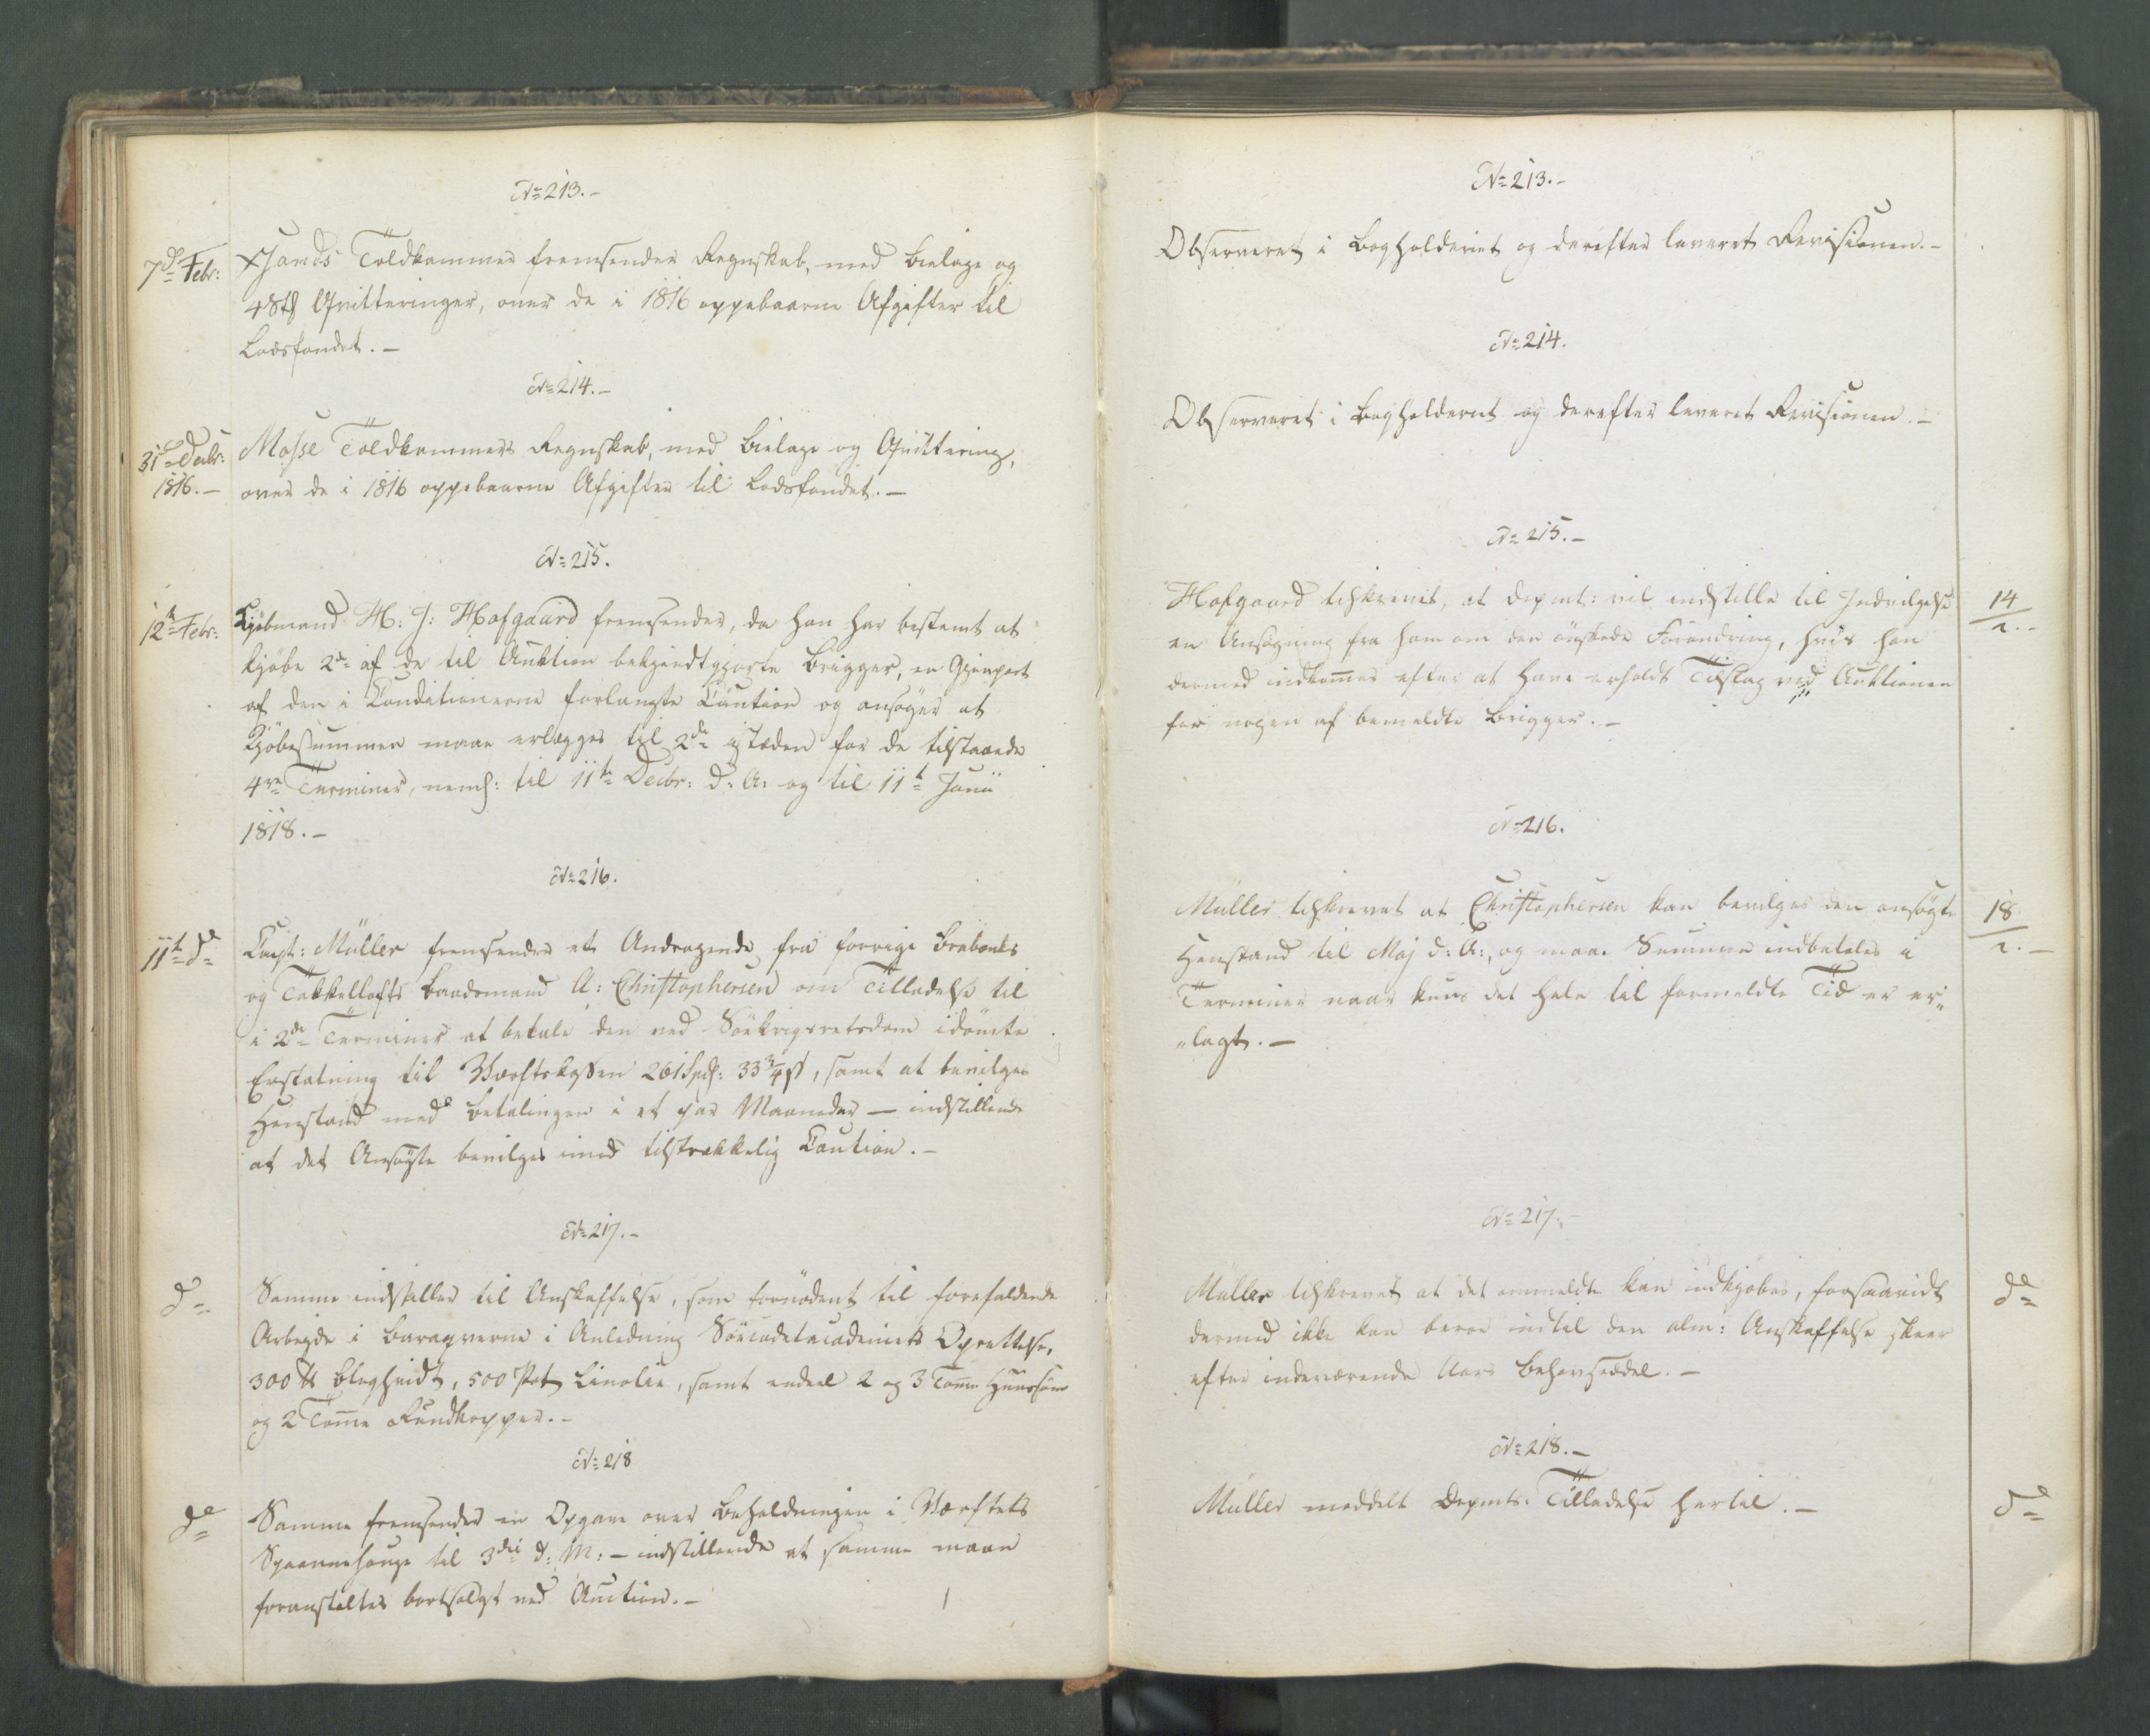 No 213.-
7de Febr: Toldkammer fremsender Regnskab, med Bielage og
4 Stk Qvitteringer, over de i 1816 oppebaarne Afgifter til
Lodsfondet.-
No 214.-
31te Decbr: Mosse Toldkammers Regnskab, med Bielage og Qvittering,
1816.- over de i 1816 oppebaarne Afgifter til Lodsfondet.-
No 215.
12te Febr: Kjöbmand H: J: Hofgaard fremsender, da han har bestemt at
kjöbe 2de af de til Auktion bekjendtgjorte Brigger, en Gjenpart
af den i Conditionerne forlangte Caution og ansöger at
Kjöbesummen maae erlægges til 2de istæden for de tilstaaede
4re Terminer, neml: til 11te Decbr: d: A: og til 11te Junii
1818.-
No 216.
11te do Capt: Müller fremsender et Andragende fra forrige
og Takkellofts Baadsmand A: Christophersen om Tilladelse til
i 2de Terminer at betale den ved Söekrigsretsdom idömte
Erstatning til Værftskassen 261 Spd: 33 3/4 s, samt at bevilges
Henstand med Betalingen i et par Maaneder — indstillende
at det Ansögte bevilges imod tilstrækkelig Caution.-
No 217.-
do Samme indstiller til Anskaffelse, som fornödent til forefaldende
Arbejde i Baraqverne i Anledning Söecadetacademiets Oprettelse,
300 ℔ Blyghvidt, 500 Pot Linolie, samt endeel 2 og 3 Tomme Huussöm
og 2 Tomme Rundkopper.-
No 218
do Samme fremsender en Opgave over Beholdningen i Værftets
Spaannehauge til 3die d: M: - indstillende at samme maae
foranstaltes bortsolgt ved Auction.-
No 213.-
Observeret i Bogholderiet og derefter leveret Revisionen.-
No 214.
Observeret i Bogholderiet og derefter leveret Revisionen.-
No 215.-
Hofgaard tilskrevet, at Depmt: vil indstille til Indvilgelse 14/2.-
en Ansögning fra ham om den önskede Forandring, hvis han
dermed indkommer efter at have erholdt Tilslag ved Auktionen
for nogen af bemeldte Brigger.-
No 216.
Müller tilskrevet at Christophersen kan bevilges den ansögte 18/2.-
Henstand til Maj d: A:, og maae Summen indbetales i
Terminer naar kuns det hele til formeldte Tid er er„
„lagt.-
No 217.-
Müller tilskrevet at det anmeldte kan indkjöbes, forsaavidt do
dermed ikke kan beroe indtil den alm: Anskaffelse skeer
efter indeværende Aars Behovsæddel.-
No 218.-
Müller meddelt Depmts: Tilladelse hertil.- do